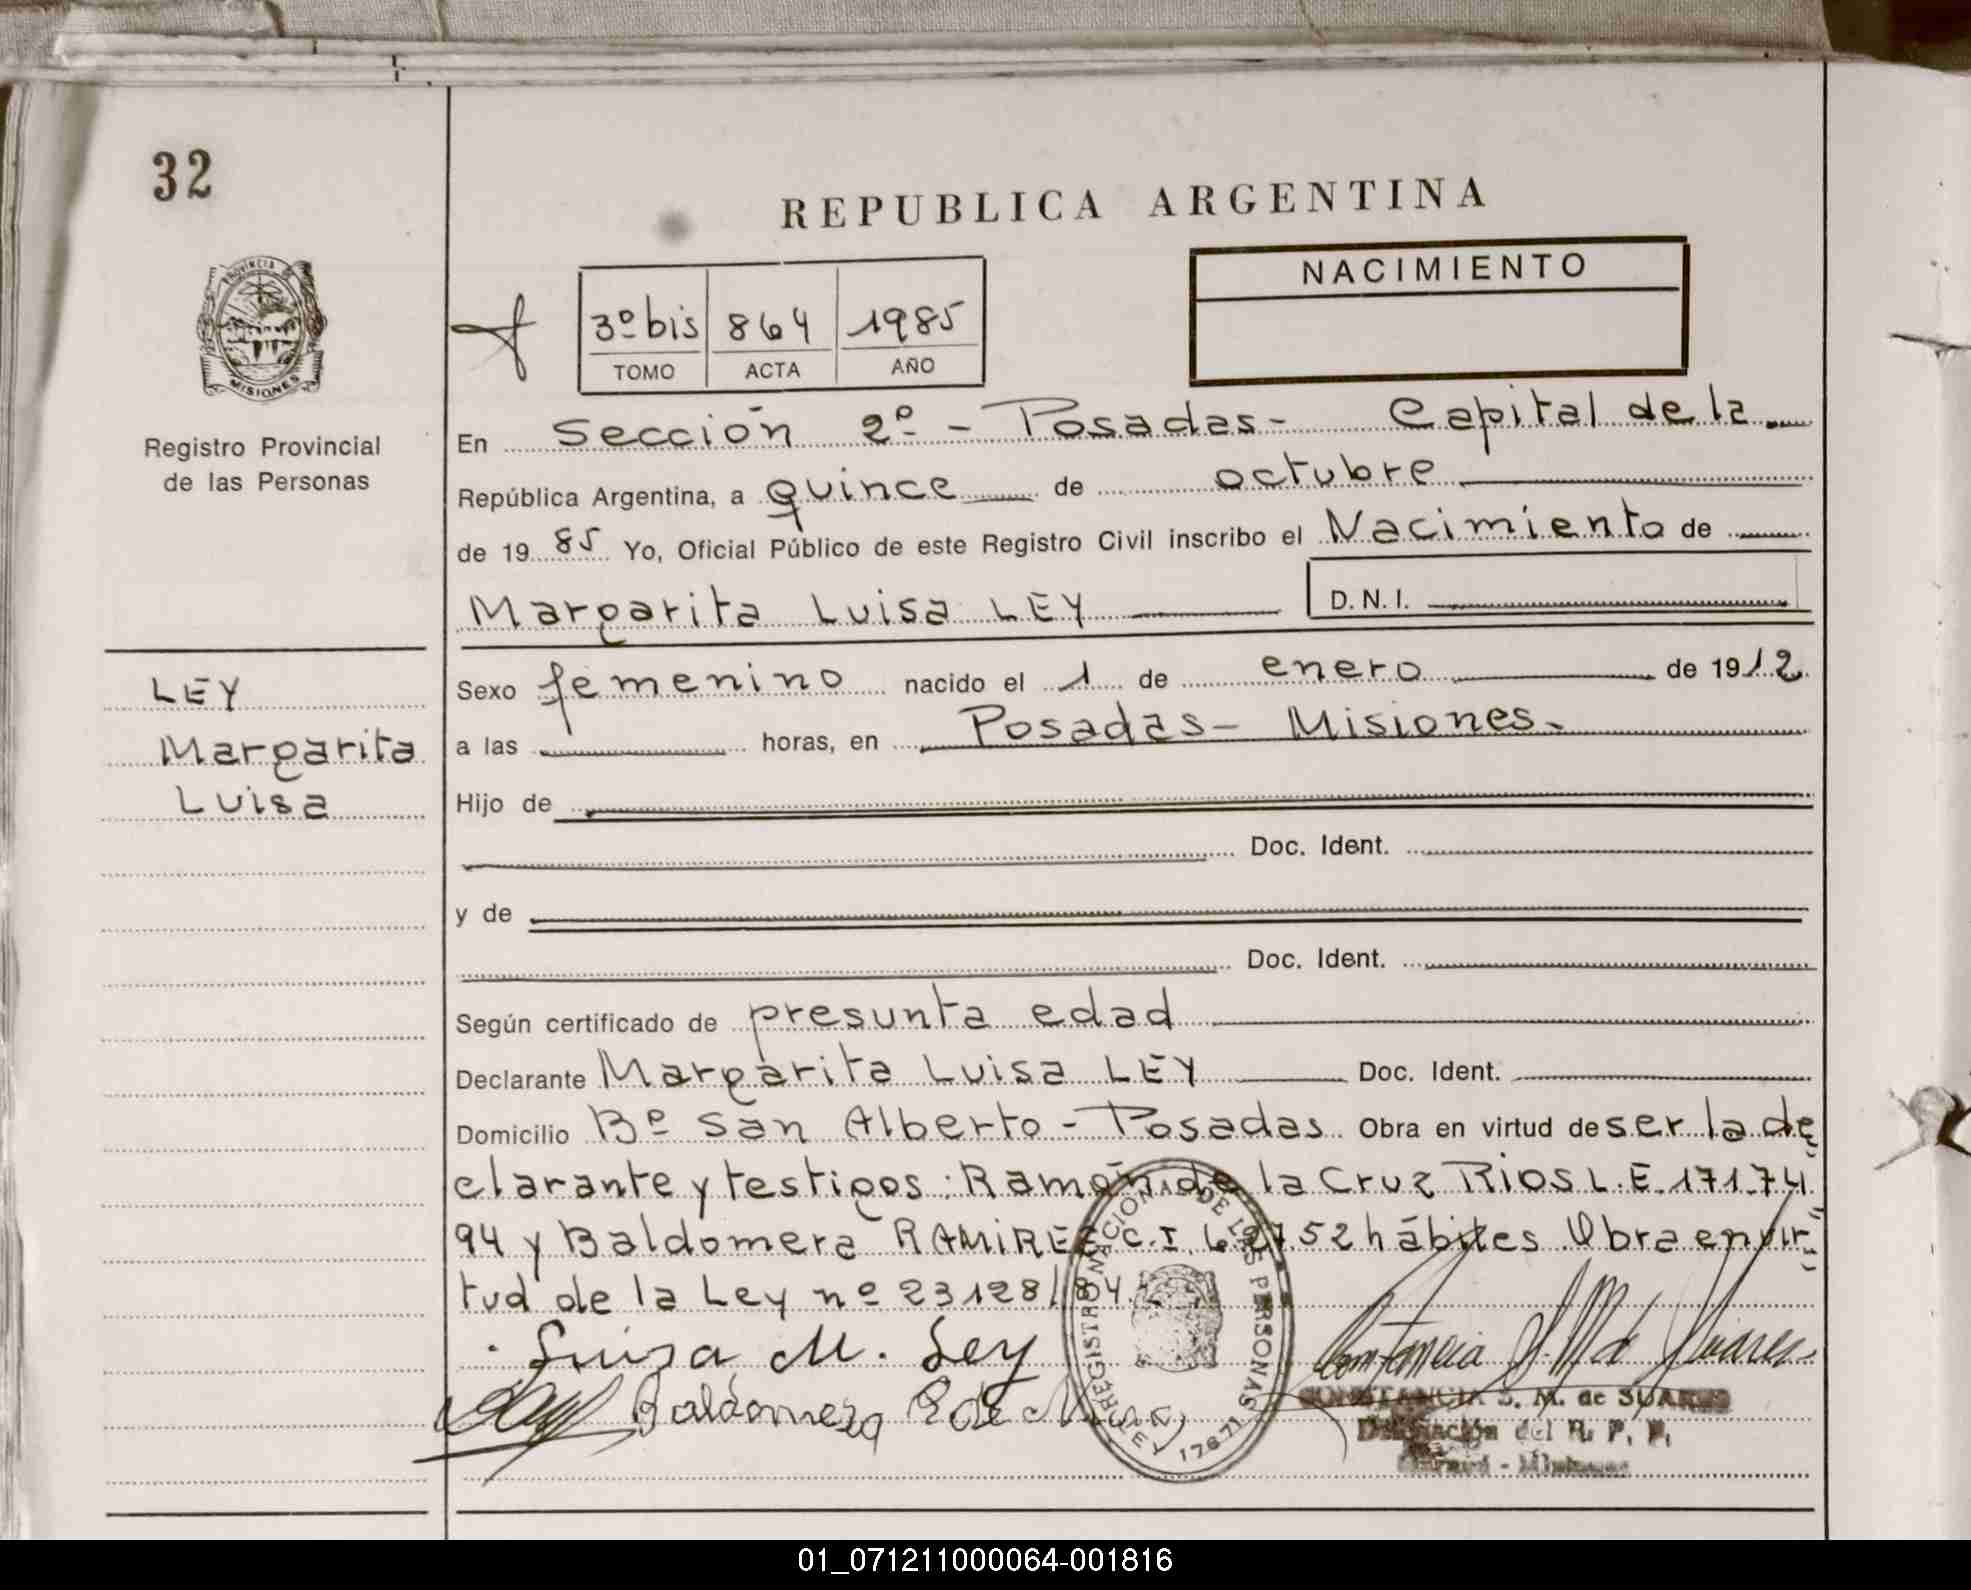 32
REPUBLICA ARGENTINA
PROVINCIA DE
MISIONES
Registro Provincial
de las Personas
3º bis 864 1985
TOMO ACTA AÑO
NACIMIENTO
En Sección 2º - Posadas - Capital de la
República Argentina, a quince de octubre
de 19 85 Yo, Oficial Público de este Registro Civil inscribo el Nacimiento de
Margarita Luisa LEY D.N.I.
LEY
Margarita
Luisa
Sexo femenino nacido el 1 de enero de 1912
a las horas, en Posadas - Misiones.
Hijo de
Doc. Ident.
y de
Doc. Ident.
Según certificado de presunta edad
Declarante Margarita Luisa LEY Doc. Ident.
Domicilio Bº San Alberto - Posadas Obra en virtud de ser la de
clarante y testigos: Ramón de la Cruz RIOS L.E. 17174
94 y Baldomera RAMIREZ C.I. 52 hábiles Obra en vir
tud de la Ley nº 23128/84.
Luisa M. Ley
Baldomera R de
REGISTRO NACIONAL DE LAS PERSONAS
LEY 17671
Constancia S. M. de Suarez
CONSTANCIA S. M. de SUAREZ
Delegación del R. P. P.
01_071211000064-001816